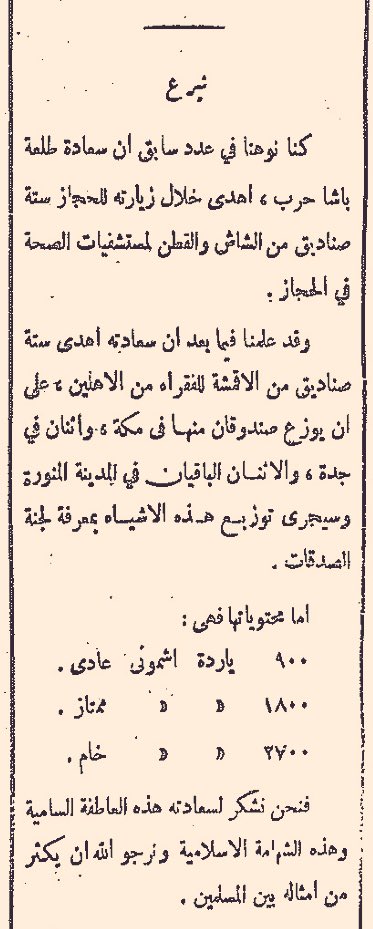 تبرع
كنا نوهنا في عدد سابق ان سعادة طلعة
باشا حرب ، اهدى خلال زيارته للحجاز ستة
صناديق من الشاش والقطن لمستشفيات الصحة
في الحجاز .
وقد علمنا فيما بعد ان سعادته اهدى ستة
صناديق من الاقمشة للفقراء من الاهلين ، على
ان يوزع صندوقان منها فى مكة ، واثنان في
جدة ، والاثنان الباقيان في المدينة المنورة
وسيجرى توزيع هذه الاشياء بمعرفة لجنة
الصدقات .
اما محتوياتها فهى :
٩٠٠ ياردة اشمونى عادى .
١٨٠٠ » » ممتاز .
٢٧٠٠ » » خام .
فنحن نشكر لسعادته هذه العاطفة السامية
وهذه الشهامة الاسلامية ونرجو الله ان يكثر
من امثاله بين المسلمين .